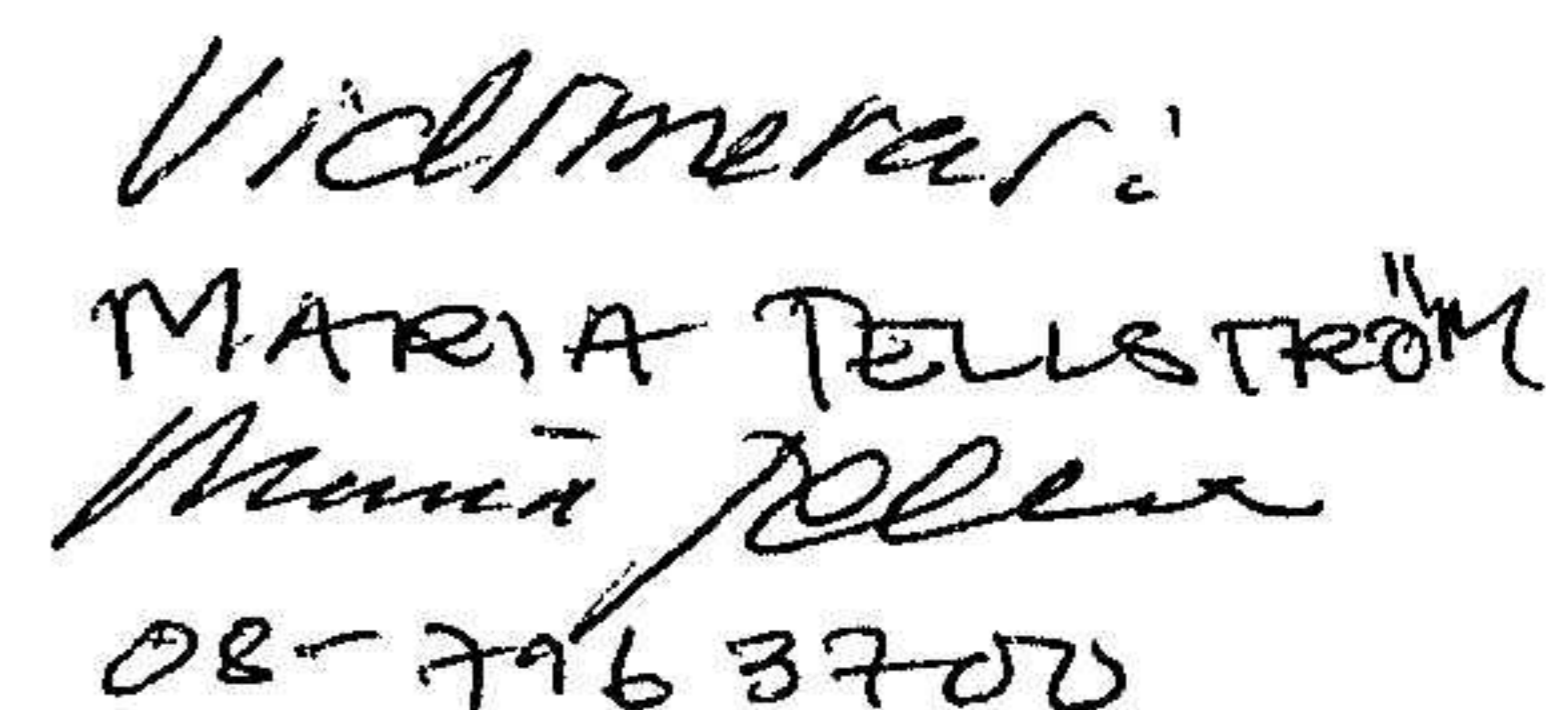 Vidimerar:
MARIA TELLSTRÖM
Maria
08-796 3700